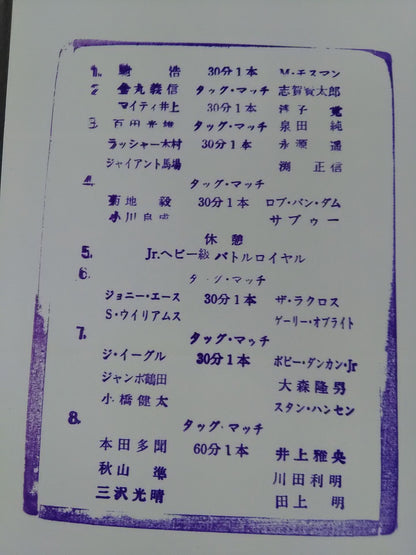 1. 騎 浩 30分1本 M・エスマン
2 金丸義信 タッグ・マッチ 志賀賢太郎
マイティ井上 30分1本 寛
3 百田光雄 タッグ・マッチ 泉田 純
ラッシャー木村 30分1本 永源 遥
ジャイアント馬場 渕 正信
4 タッグ・マッチ
菊地 毅 30分1本 ロブ・バン・ダム
小川良成 サブゥー
休憩
5. Jr.ヘビー級 バトルロイヤル
6. タッグ・マッチ
ジョニー・エース 30分1本 ザ・ラクロス
S・ウイリアムス ゲーリー・オブライト
7. タッグ・マッチ
ジ・イーグル 30分1本 ボビー・ダンカン・Jr
ジャンボ鶴田 大森隆男
小橋健太 スタン・ハンセン
8. タッグ・マッチ
本田多聞 60分1本 井上雅央
秋山 準 川田利明
三沢光晴 田上 明